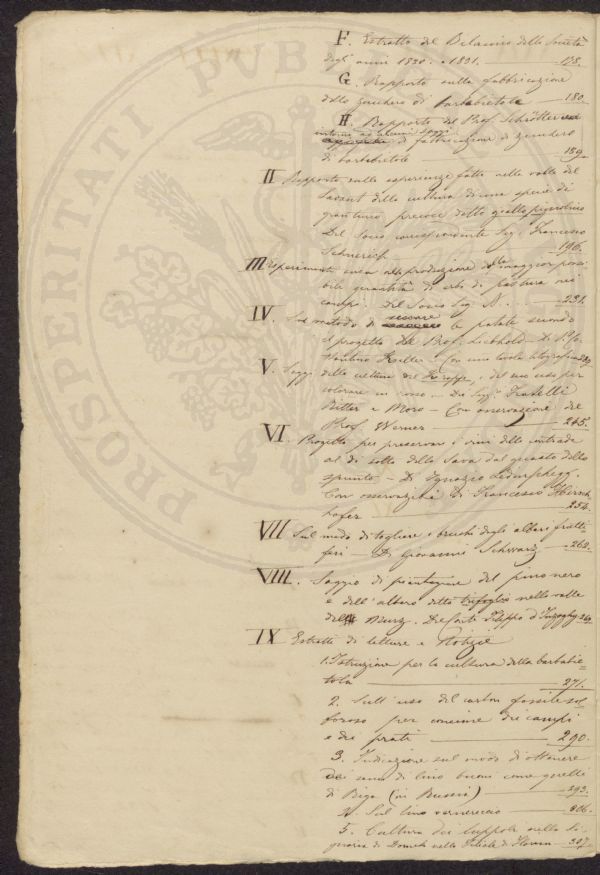 F. Estratto del Bilancio della Società
degli anni 1830. e 1831. 178.
G. Rapporto sulla fabbricazione
dello zucchero di barbabietole 180.
H. Rapporto del Prof. Schrötter
intorno ad alcuni saggi
di fabbricazione di zucchero
di barbabietole 189.
II Rapporto sulle esperienze fatte nella valle del
della cultura di una specie di
granturco precoce detto giallo pignolino
Del Socio corrispondente Sig. Francesco
196.
III Esperimenti circa alla produzione della maggior possi-
bile quantità di erbe di pastura nei
campi. Del Socio Sig. N. 231.
IV. Sul metodo di seccare le patate secondo
il progetto del Prof. Liebhold – Di
Keller – Con una tavola litografica
V. Saggi della cultura del e del suo uso per
colorare in rosso – Dei Sigg. Fratelli
Ritter e Moro – Con osservazione del
Prof. Werner 245.
VI. Progetto per preservare i vini delle contrade
al di sotto della Sava dal guasto dello
spunto – Di Ignazio
Con osservazioni Di Francesco
254.
VII Sul modo di togliere i bruchi dagli alberi frutti-
feri – Di Giovanni Schwarz – 262.
VIII. Saggio di piantagione del pino nero
e dell'albero detto trifoglio nella valle
della Murz. Del Conte Filippo d'
IX Estratti di lettere e Notizie
1. Istruzione per la cultura della barbabie-
tola 271.
2. Sull'uso del carbon fossile sol-
foroso per concime dei campi
e dei prati 290.
3. Indicazione sul modo di ottenere
dei semi di lino buoni come quelli
di Riga (in Russia) 293.
4. Sul lino vernereccio 306.
5. Cultura dei luppoli nella Si-
gnoria di nella Valle di 307.
PROSPERITATI PUBLICAE